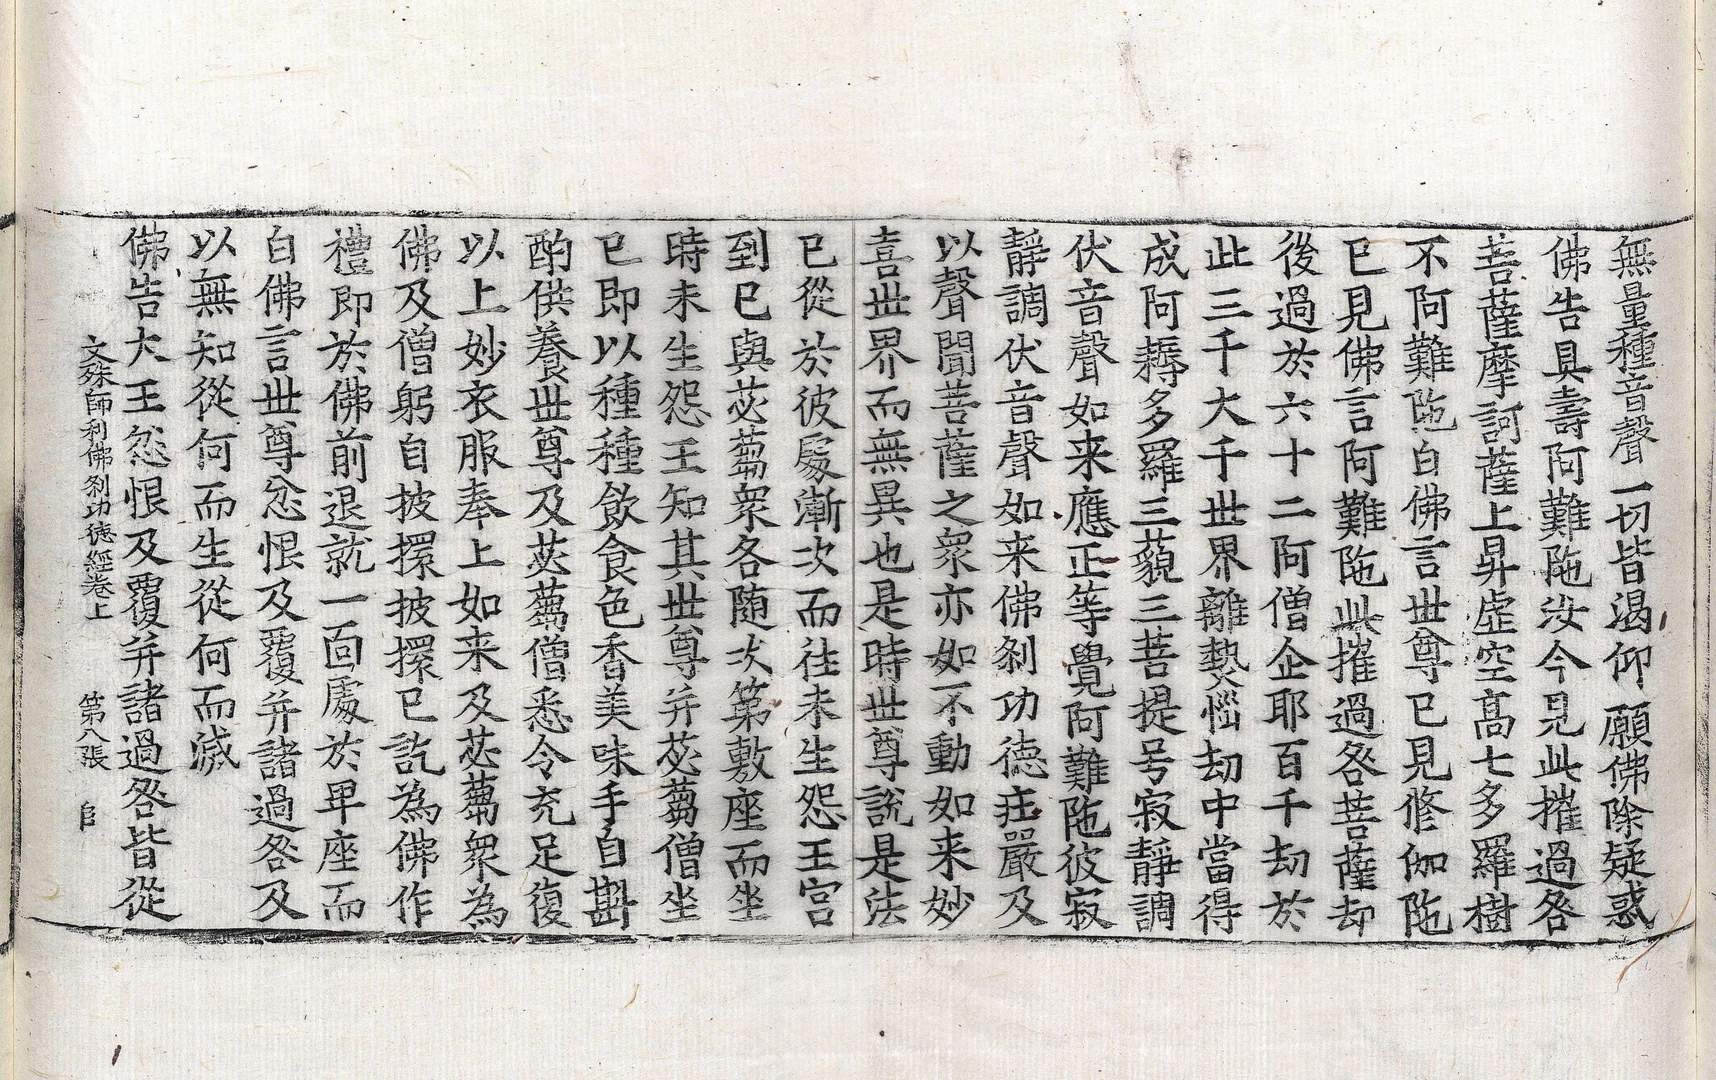 無量種音聲一切皆渴仰願佛除疑惑
佛告具壽阿難陁汝今見此摧過咎
菩薩摩訶薩上昇虛空髙七多羅樹
不阿難陁白佛言世尊已見修伽陁
已見佛言阿難陁此摧過咎菩薩却
後過於六十二阿僧企耶百千劫於
此三千大千世界離𤍠惱劫中當得
成阿耨多羅三藐三菩提号寂靜調
伏音聲如来應正等覺阿難陁彼寂
靜調伏音聲如来佛剎功德莊嚴及
以聲聞菩薩之衆亦如不動如来妙
喜世界而無異也是時世尊說是法
已從於彼處漸次而往未生怨王宮
到已與苾蒭衆各随次第敷座而坐
時未生怨王知其世尊并苾蒭僧坐
已即以種種飲食色香美味手自斟
酌供養世尊及苾蒭僧悉令充足復
以上妙衣服奉上如来及苾蒭衆為
佛及僧躬自披擐披擐已訖為佛作
禮即於佛前退就一面處於卑座而
白佛言世尊忿恨及覆并諸過咎及
以無知從何而生從何而滅
佛告大王忿恨及覆并諸過咎皆從
文殊師利佛剎功德經卷上　第八張